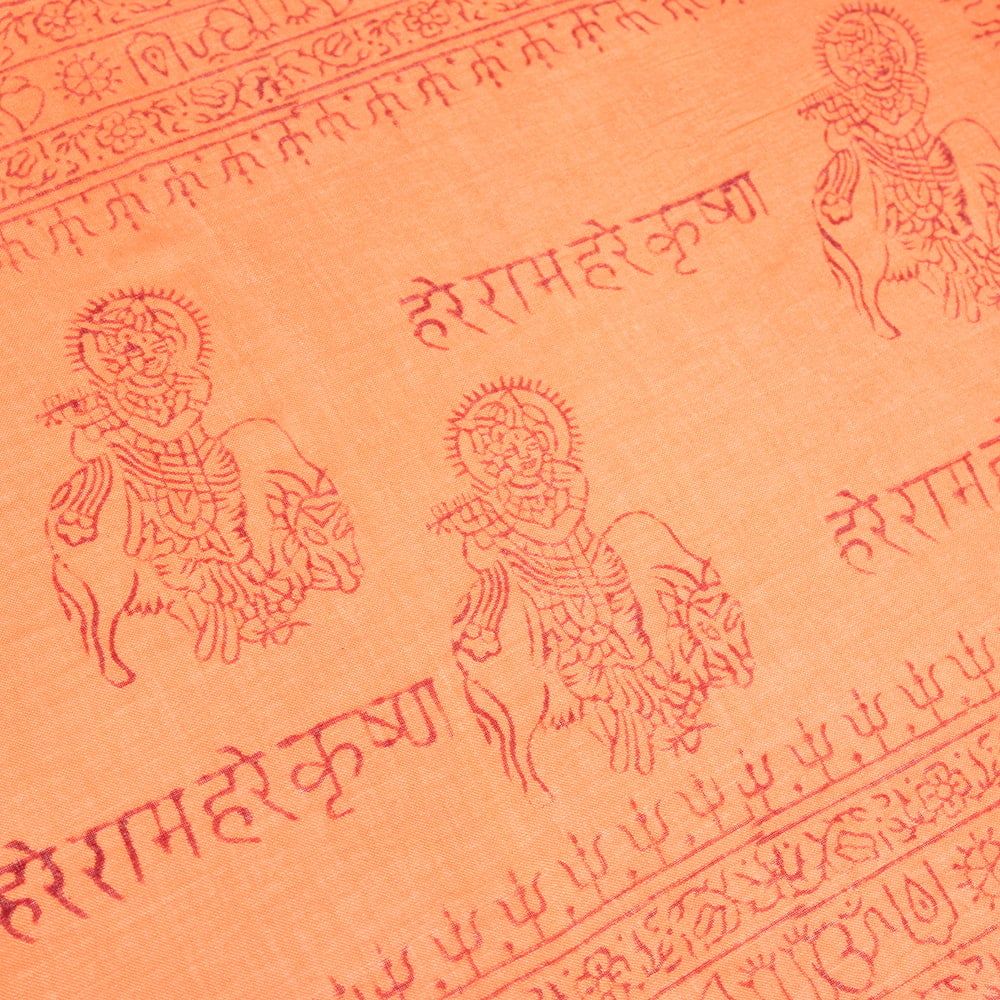 हरे राम हरे कृष्ण
हरे राम ह
हरे राम हरे कृष्ण